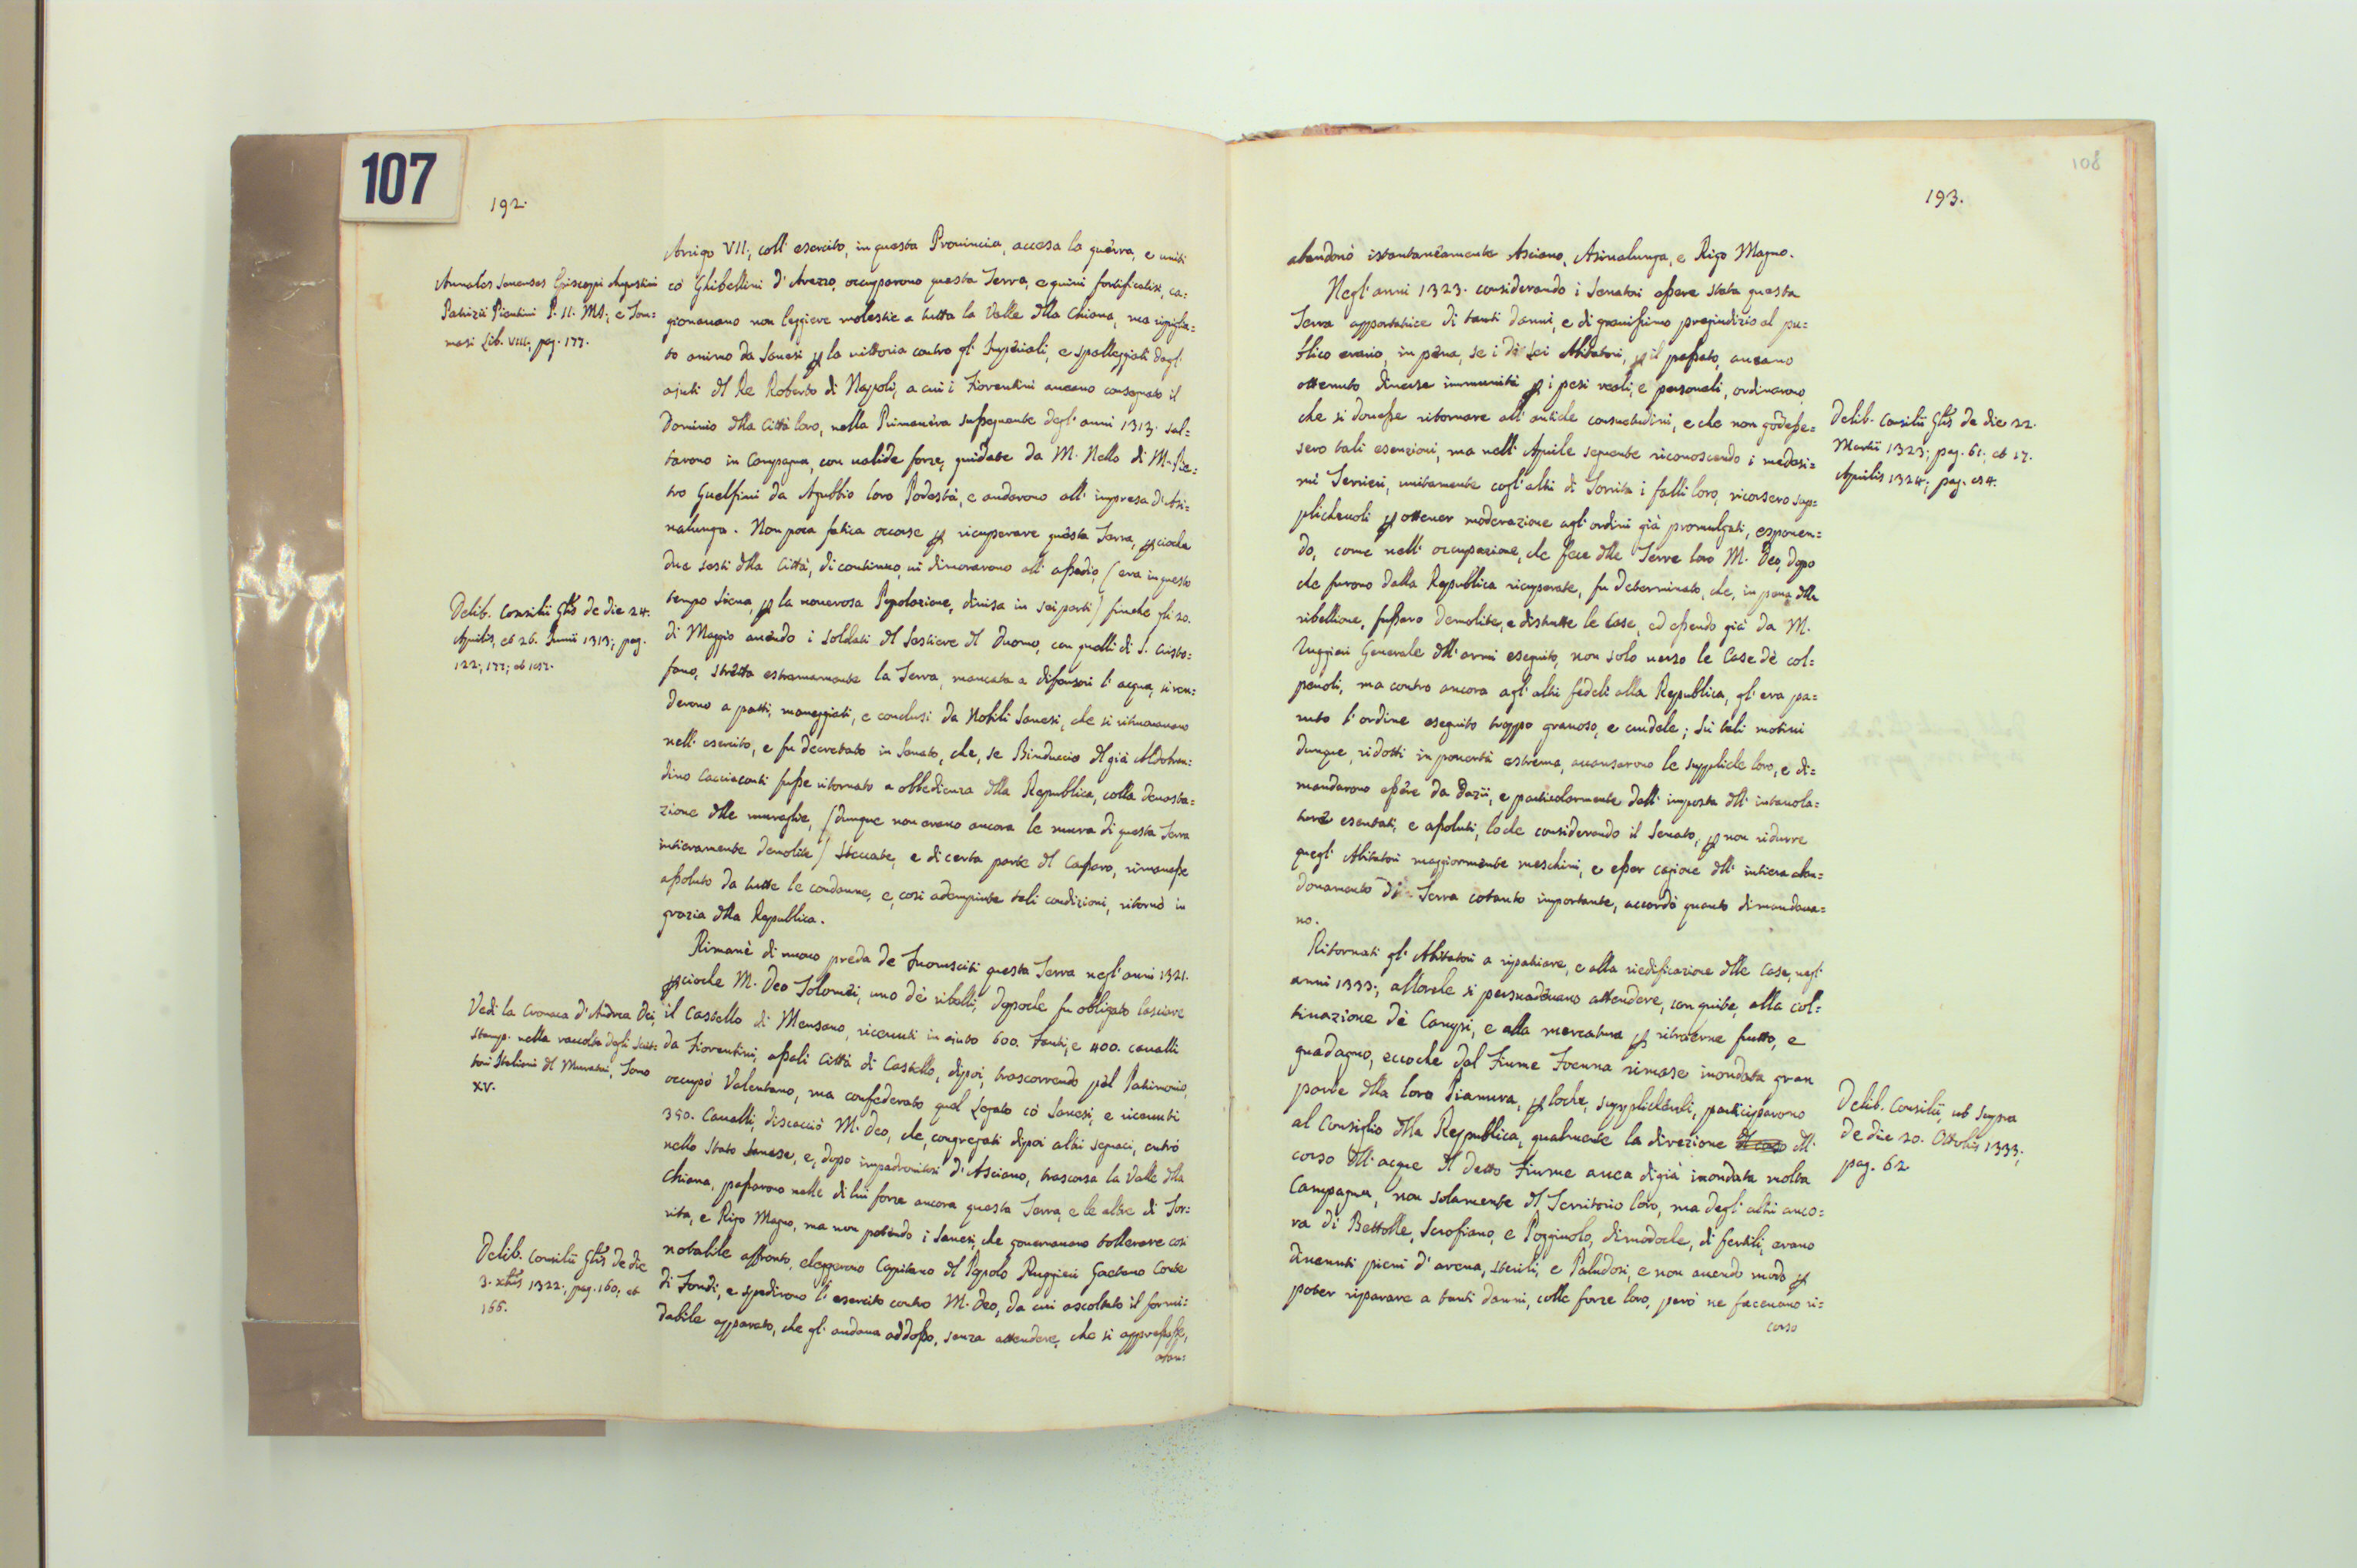 107
192.
Arrigo VII; coll' esercito, in questa Prouincia, accesa la guerra, e uniti
cò Ghibellini d' Arezzo, occuparono questa Terra, e quiui fortificatisi, ca=
gionauano non leggiere molestie a tutta la Valle dlla Chiana, ma ripiglia=
to animo da Sanesi p la uittoria contro gl' Imperiali, e spalleggiati dagl'
ajuti dl Re Roberto di Nappoli, a cui i Fiorentini aueano consegnato il
Dominio dlla Città loro, nella Primauera susseguente degl' anni 1313. sal=
tarono in Campagna, con ualide forze, guidate da M. Nello di M. Pie=
tro Guelfini da Agubbio loro Podestà, e andarono all' impresa d' Asi=
nalunga. Non poca fatica occorse p ricuperare questa Terra, pcioche
due sesti dlla Città, di continuo, ui dimorarono all' assedio, (era in questo
tempo Siena, p la nouerosa Popolazione, diuisa in sei parti) finche gli 20.
di Maggio auendo i soldati dl Sestiere dl Duomo, con quelli di S. Cristo=
fano, stretta estremamente la Terra, mancata a difensori l' acqua, si ren=
derono a patti, maneggiati, e conclusi da Nobili Sanesi, che si ritrouauano
nell' esercito, e fu decretato in Senato, che, se Binduccio dl già Aldobran=
dino Cacciaconti fusse ritornato a obbedienza dlla Republica, colla deuasta=
zione dlle muraglie, (dunque non erano ancora le mura di questa Terra
intieramente demolite) steccate, e di certa parte dl Cassaro, rimanesse
assoluto da tutte le condanne, e, così adempiute tali condizioni, ritornò in
grazia dlla Republica.
Rimane di nuouo preda de Fuorusciti questa Terra negl' anni 1321.
pcioche M. Deo Tolomei, uno dè ribelli, dopoche fu obligato lasciare
il Castello di Mensano, riceuuti in aiuto 600. Fanti, e 400. caualli
da Fiorentini, assalì Città di Castello, dipoi, trascorrendo pel Patrimonio,
occupò Valentano, ma confederato quel Legato cò Sanesi, e riceuuti
350. Caualli, discacciò M. Deo, che, congregati dipoi altri seguaci, entrò
nello Stato Sanese, e, dopo impadronitosi d' Asciano, trascorsa la Valle dlla
Chiana, passarono nelle di lui forze ancora questa Terra, e le altre di Tor=
rita, e Rigo Magno, ma non potendo i Sanesi, che gouernauano tollerare così
notabile affronto, elessero Capitano dl Popolo Ruggieri Gaetano Conte
di Fondi, e spedirono l' esercito contro M. Deo, da cui ascoltato il formi=
dabile apparato, che gl' andaua addosso, senza attendere, che si appressasse,
aban=
Annales Senenses Episcopi Augustini
Patrizii Pientini P. II. MS; e Tom=
masi Lib. VIII; pag. 177.
Delib. Consilii Gtis de die 24.
Aprilis, et 26. Junii 1313; pag.
122; 177; et 187.
Vedi la Cronaca d' Andrea Dei,
stamp. nella raccolta degli Scrit=
tori Italiani dl Muratori, Tomo
XV.
Delib. Consilii Gtis de die
3. xbris 1322., pag. 160; et
166.
108
193.
abandonò istantaneamente Asciano, Asinalunga, e Rigo Magno.
Negl' anni 1323. considerando i Senatori essere stata questa
Terra apportatrice di tanti danni, e di grauissimo pregiudizio al pu=
blico erario, in pena, se i di lei Abitatori, p il passato, aueano
ottenuto diuerse immunità p i pesi reali, e personali, ordinarono,
che si douesse ritornare all' antiche consuetudini, e che non godesse=
sero tali esenzioni, ma nell' Aprile seguente riconoscendo i medesi=
mi Terrieri, unitamente cogl' altri di Torrita i falli loro, ricorsero sup=
plicheuoli p ottener moderazione agl' ordini già promulgati, esponen=
do, come nell' occupazione, che fece dlle Terre loro M. Deo, dopo
che furono dalla Republica ricuperate, fu determinato, che, in pena dlla
ribellione, fussero demolite, e distrutte le Case, ed essendo già da M.
Ruggieri Generale dll' armi eseguito, non solo uerso le Case dè col=
peuoli, ma contro ancora agl' altri fedeli alla Republica, gl' era pa=
ruto l' ordine eseguito troppo grauoso, e crudele; Su tali motiui
dunque, ridotti in pouertà estrema, auansarono le suppliche loro, e di=
mandarono essere da Dazii, e particolarmente dall' imposta dll' intauola=
ture esentati, e assoluti, loche considerando il Senato, p non ridurre
quegl' Abitatori maggiormente meschini, e esser cagione dll' intiera aban=
donamento di Terra cotanto importante, accordò quanto dimandaua=
no.
Ritornati gl' Abitatori a ripatriare, e alla riedificazione dlle Case, negl'
anni 1333; allorche si persuadeuano attendere, con quiete, alla col=
tiuazione dè Campi, e alla mercatura p ritraerne frutto, e
guadagno, eccoche dal Fiume Foenna rimase inondata gran
parte dlla loro Pianura, p loche, supplicheuoli, participarono
al Consiglio dlla Republica, qualmente la direzione dll'
corso dll' acque dl detto Fiume auea digià inondata molta
Campagna, non solamente dl Territorio loro, ma degl' altri anco=
ra di Bettolle, Scrofiano, e Poggiuolo, dimodoche, di fertili, erano
diuenuti pieni d' arena, sterili, e Paludosi, e non auendo modo p
poter riparare a tanti danni, colle forze loro, però ne faceuano ri=
corso
Delib. Consilii Gtis de die 22.
Martii 1323; pag. 61; et 17.
Aprilis 1324; pag. 54.
Delib. Consilii, ut supra
de die 20. Ottobris 1333;
pag. 62